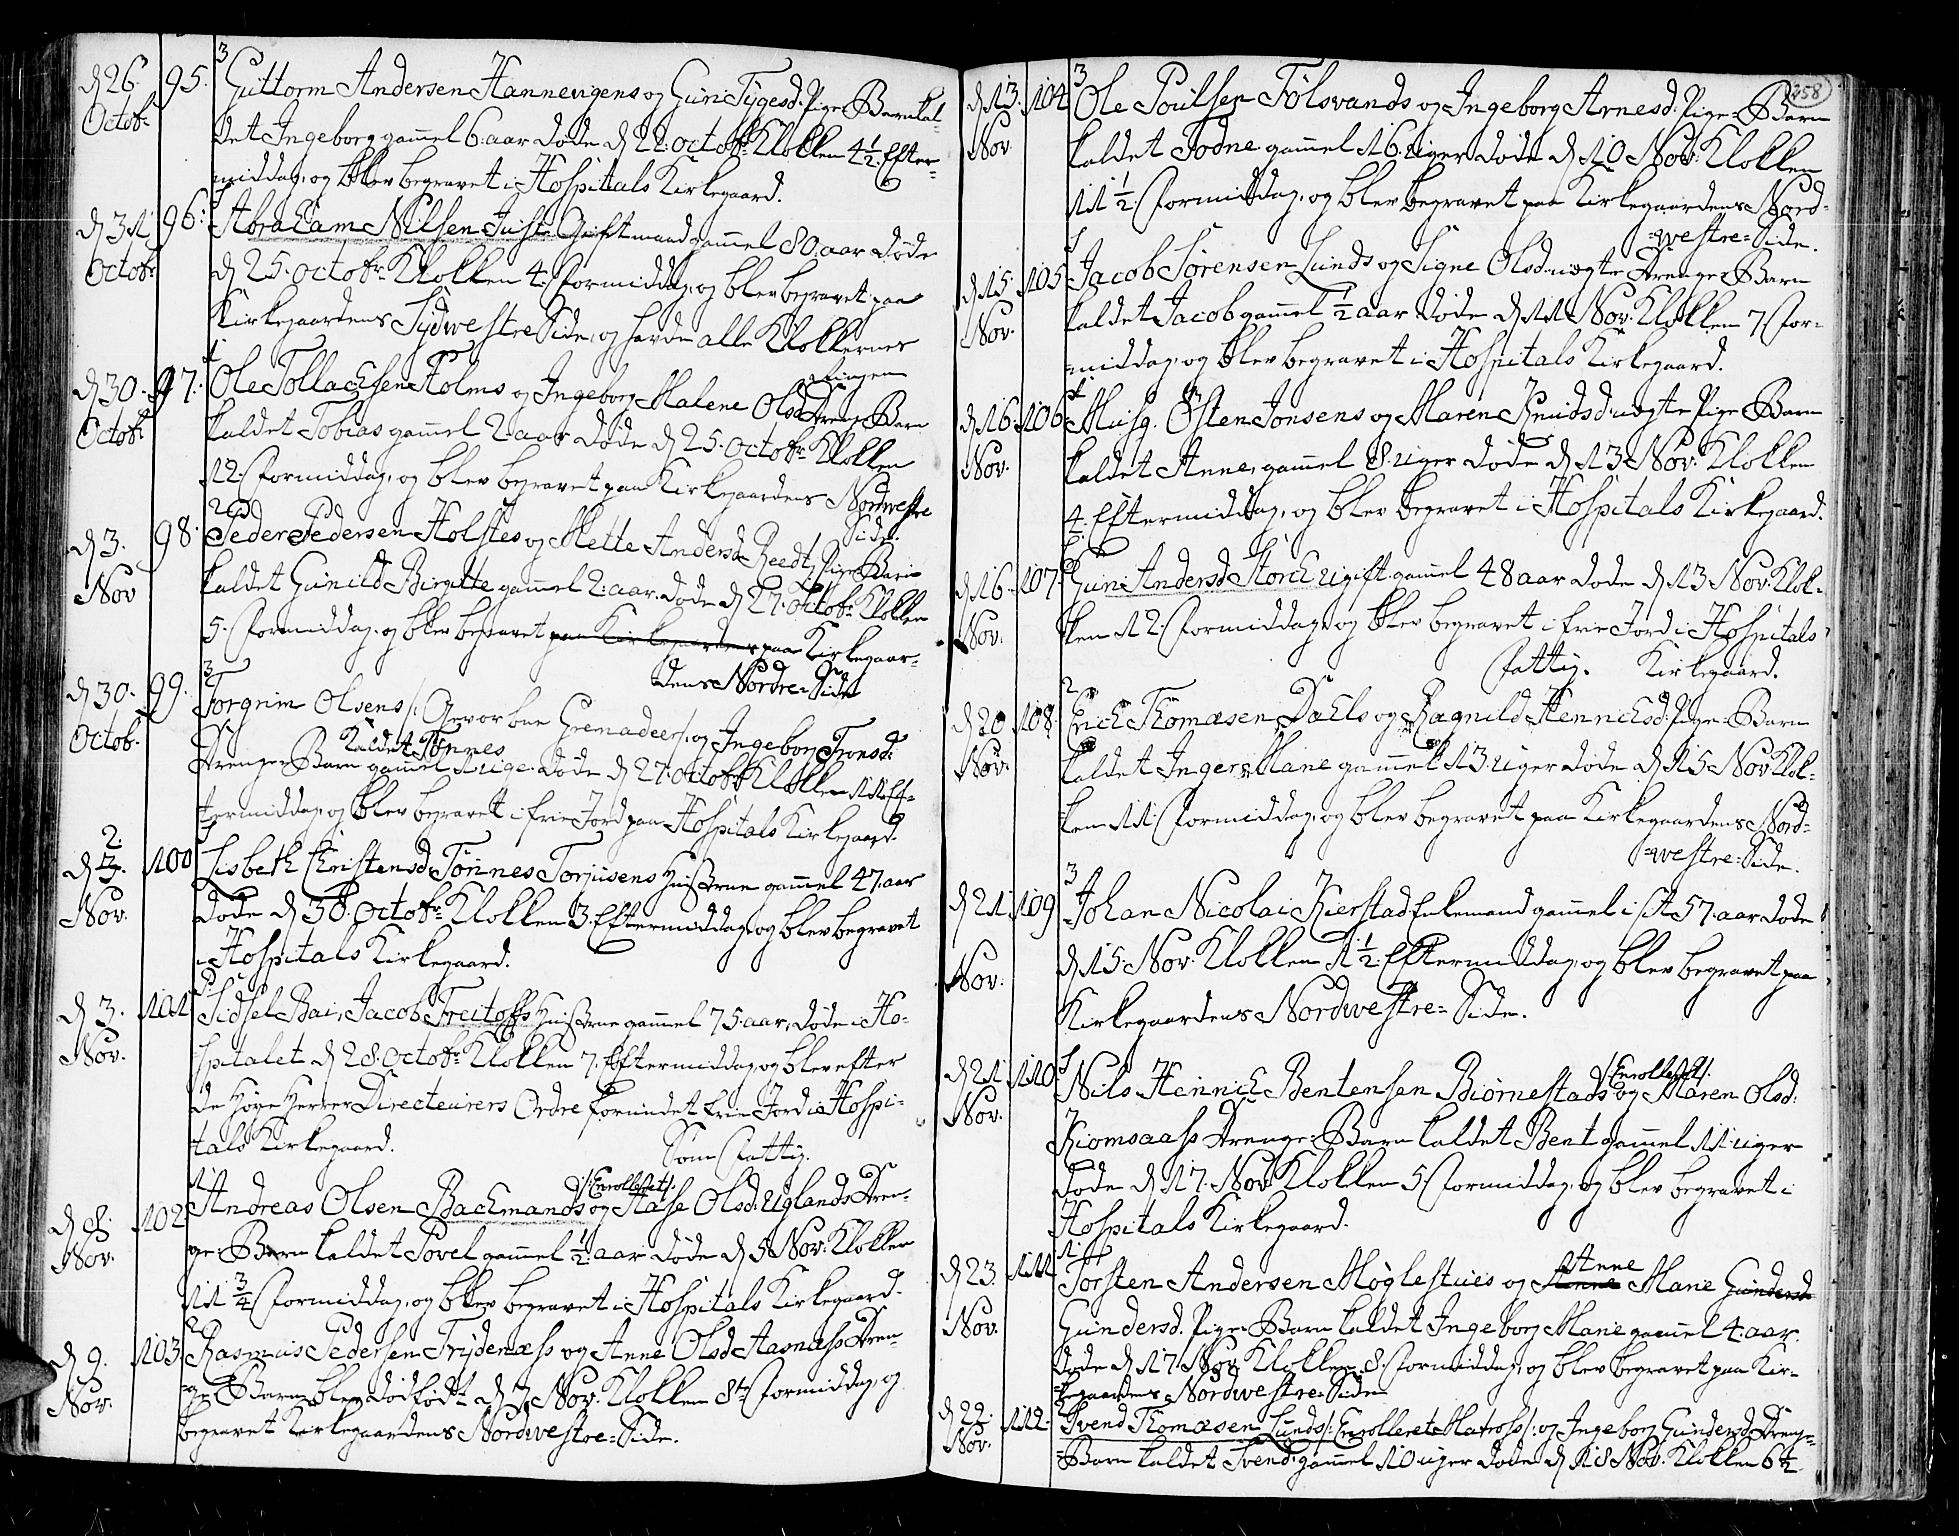 d 26. Octob: 95. 3 Guttorm Andersen Hannevigens og Guri Tygesd. Pige-Barn kal-
det Ingeborg gammel 6 aar døde d 22. Octobr. Klokken 4 1/2 Efter-
middag, og blev begravet i Hospitals Kirkegaard.
d 31 Octobr 96: Abraham Nilsen Just Gift mand gammel 80 aar døde
d 25. Octobr. Klokken 4. Formiddag, og blev begravet paa
Kirkegaardens Sydwestre Side, og havde alle Klokkernes
ringen
d 30. Octobr 97: Ole Tollachsen Holms og Ingeborg Malene Olsd. Drenge-Barn
kaldet Tobias gammel 2 aar døde d 25. Octobr. Klokken
12. Formiddag, og blev begravet paa Kirkegaardens Nordwestre
Side.
d 3. Nov 98: 2 Peder Pedersen Holstes og Mette Andersd. Reedt, Pige-Barn
kaldet Gunild Birgitte gammel 2 aar. døde d 27. Octobr. Klokken
5. Formiddag, og blev begravet paa Kirkegaardens paa Kirkegaar-
dens Nordre-Side
d 30. Octob. 99. 3 Torgrim Olsens /: Gevorbne Grenadeer :/, og Ingeborg Tronsd:
kaldet Tønnes
Drenge-Barn gammel 1 uge. døde d 27. Octobr. Klokken 11 Ef-
termiddag, og blev begravet i frie Jord paa Hospitals Kirkegaard.
d 2. Nov. 100 Lisbeth Christensd. Tønnes Torjusens Hustrue gammel 47. aar
døde d 30. Octobr. Klokken 3. Eftermiddag, og blev begravet
i Hospitals Kirkegaard.
d 3. Nov. 101 Sidsel Bai, Jacob Freitoffs Hustrue gammel 75 aar, døde i Ho-
spitalet d 28 Octobr. Klokken 7. Eftermiddag, og blev efter
de Høye Herrer Directeurers Ordre forundet frie Jord i Hospi-
tals Kirkegaard. Fattig.
d 8. Nov. 102 1 Andreas Olsen Bachmands /:Enrolleret:/ og Aase Olsd. Uglands Dren-
ge-Barn kaldet Povel gammel 1/2 aar døde d 5 Nov. Klokken
11 3/4 Formiddag, og blev begravet i Hospitals Kirkegaard.
d 9. Nov. 103 2 Rasmus Pedersen Frydenæss og Anne Olsd. Aasnæss Dren-
ge-Barn blev død født d 7 Nov. Klokken 8te Formiddag, og
begravet Kirkegaardens Nordwestre-Side.
358
d 13. Nov 104 3 Ole Poulsen Følsvands og Ingeborg Arnesd. Pige-Barn
kaldet Todne gammel 16 uger døde d 10 Nov. Klokken
11 1/2. Formiddag, og blev begravet paa Kirkegaardens Nord-
westre-Side.
d 15. Nov. 105 Jacob Sørensen Lunds og Signe Olsd. uægte Drenge-Barn
kaldet Jacob gammel 1/2 aar døde d 11 Nov. Klokken 7 For-
middag, og blev begravet i Hospitals Kirkegaard.
d 16 Nov. 106 Musq. Østen Jonsens og Maren Knudsd. uægte Pige Barn
kaldet Anne, gammel 8 uger døde d 13 Nov. Klokken
4. Eftermiddag, og blev begravet i Hospitals Kirkegaard.
d 16. Nov. 107 Guri Andersd. Storch ugift gammel 48 aar døde d 13 Nov. Klok-
ken 12. Formiddag, og blev begravet i frie Jord i Hospitals
Fattig. Kirkegaard.
d 20 Nov. 108 2 Erich Thomæsen Dahls og Ragnild Hennichsd. Pige-Barn
kaldet Inger Marie gammel 13 uger døde d 15 Nov. Klok-
ken 11. Formiddag, og blev begravet paa Kirkegaardens Nord-
westre-Side.
d 21. Nov. 109 3 Johan Nicolai Kierstad Enkemand gammel i sit 57. aar døde
d 15. Nov. Klokken 1 1/2. Eftermiddag, og blev begravet paa
Kirkegaardens Nordwestre-Side.
d 21. Nov. 110 Nils Hennich Bentensen Biørnestads /:Enrolleret:/ og Maren Olsd.
Kiomsaass Drenge-Barn kaldet Bent gammel 11 uger
døde d 17. Nov. Klokken 5 Formiddag, og blev begravet i
Hospitals Kirkegaard.
d 23. Nov. 111 1 Torsten Andersen Møglestues og Anne Anne Marie Gundersd
Gundersd. Pige-Barn kaldet Ingeborg Marie gammel 4. aar.
døde d 17. Nov. Klokken 8. Formiddag, og blev begravet paa Kir-
kegaardens Nordwestre-Side
d 22. Nov. 112. 2 Svend Thomæsen Lunds /: Enrolleret Matross :/ og Ingeborg Gundersd. Drenge-
Barn kaldet Svend, gammel 10 uger døde d 18 Nov. Klokken 6 1/2.